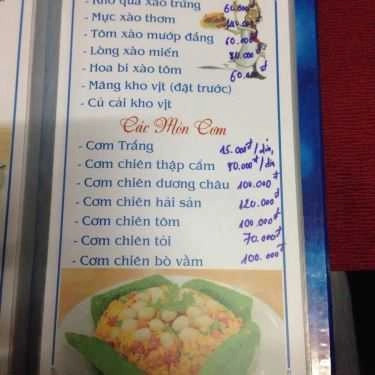 - Khổ qua xào trứng 60.000đ
- Mực xào thơm
- Tôm xào mướp đắng 60.000đ
- Lòng xào miến 80.000đ
- Hoa bí xào tôm 60.000đ
- Măng kho vịt (đặt trước)
- Củ cải kho vịt
Các Món Cơm
- Cơm Trắng 15.000đ/dĩa
- Cơm chiên thập cẩm 90.000đ/dĩa
- Cơm chiên dương châu 100.000đ
- Cơm chiên hải sản 120.000đ
- Cơm chiên tôm 100.000đ
- Cơm chiên tỏi 70.000đ
- Cơm chiên bò vằm 100.000đ